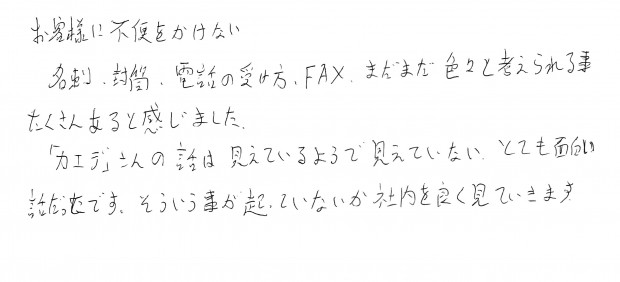 お客様に不便をかけない
名刺、封筒、電話の受け方、FAX、まだまだ色々と考えられる事
たくさんあると感じました。
「カエデ」さんの話は見えているようで見えていない、とても面白い
話だったです。そういう事が起っていないか社内を良く見ていきます